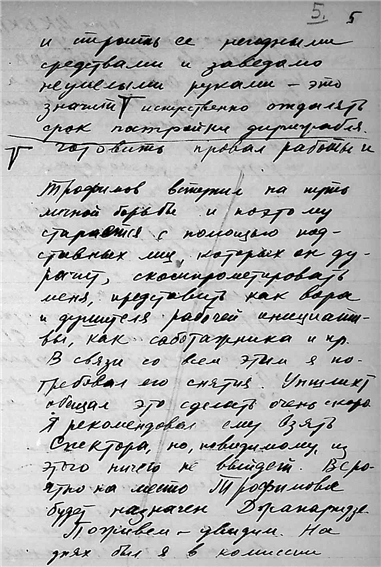 5. 5
и строить ее негодными
средствами и заведомо
неумелыми руками – это
значит искусственно отдалять
срок постройки дирижабля.
готовить провал работы и
Трофимов вступил на путь
личной борьбы и поэтому
старается с помощью под-
ставных лиц, которых он ду-
рачит, скомпрометировать
меня, представить как вора
и душителя рабочей инициати-
вы, как саботажника и пр.
В связи со всем этим я по-
требовал его снятия. Уншлихт
обещал это сделать очень скоро.
Я рекомендовал ему взять
Спектора, но, повидимому, из
этого ничего не выйдет. Веро-
ятно на место Трофимова
будет назначен
Поживем – увидим. На
днях был я в комиссии